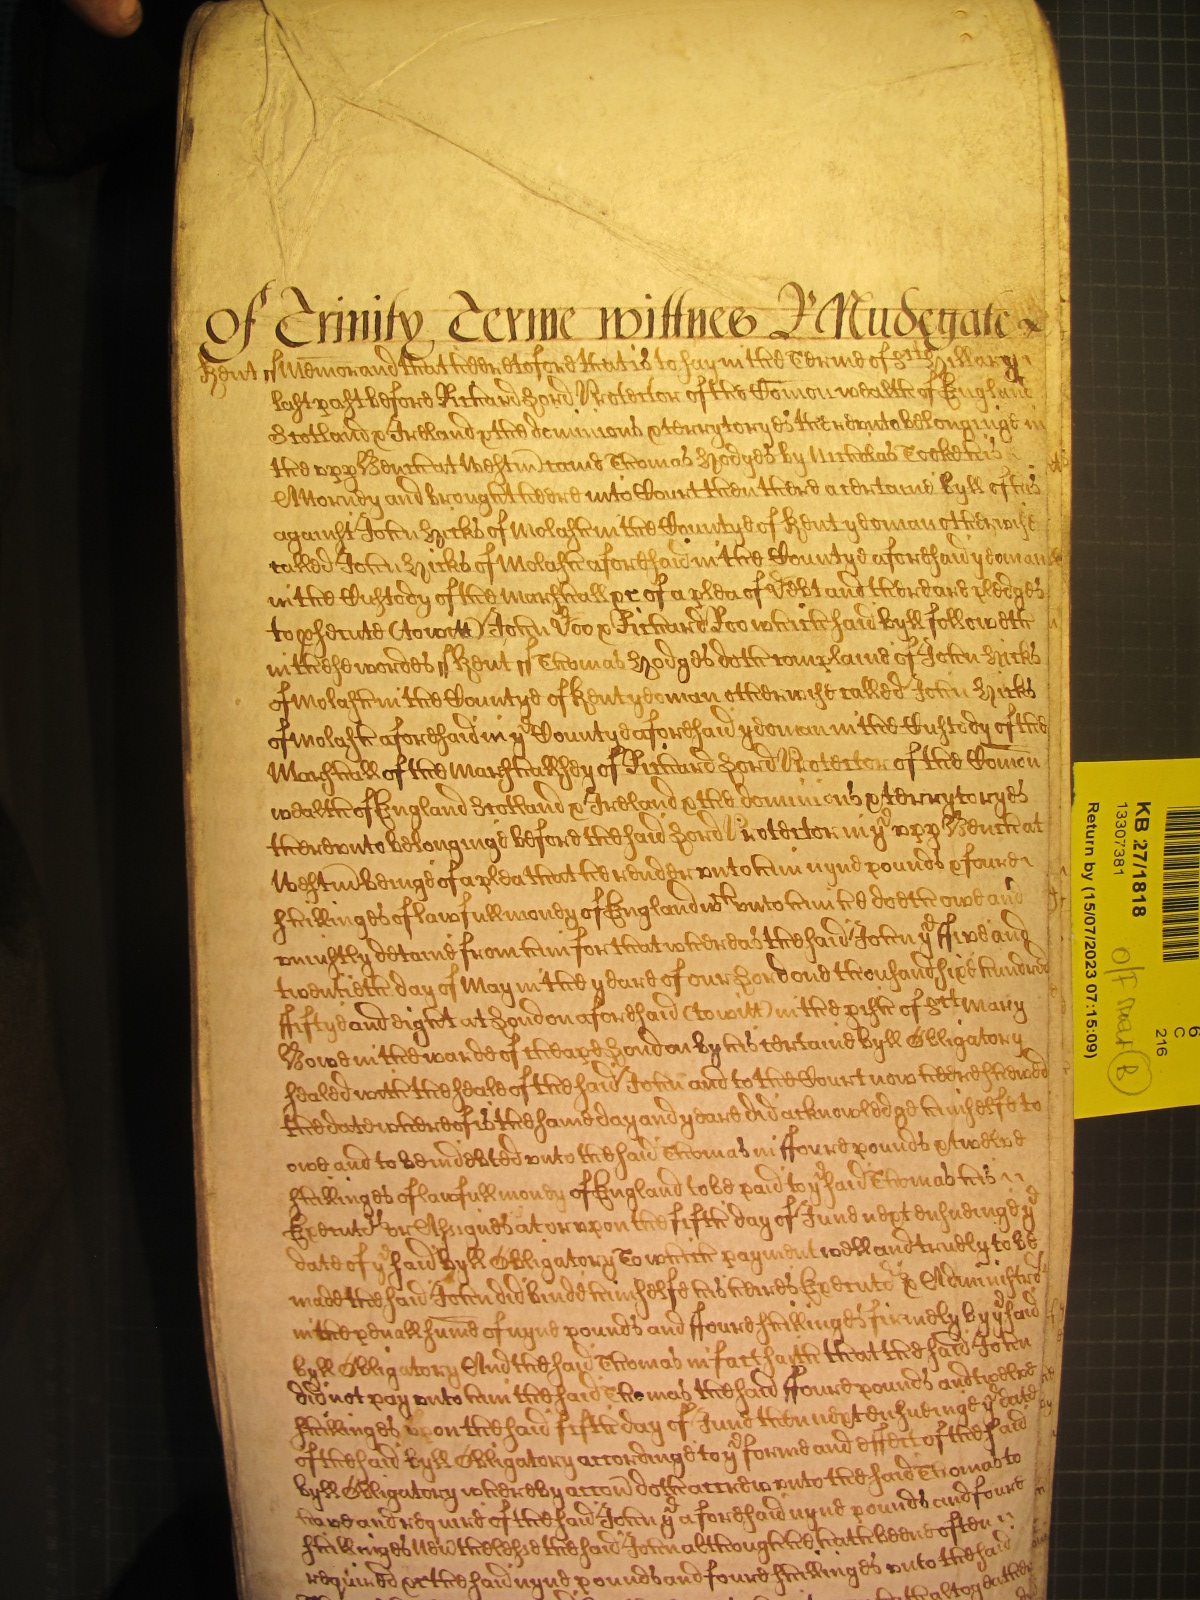 Of Trinity Terme wittnes R Nudegate
Kent ss Memorand that heeretofore that is to say in the Terme of St Hillary
last past before Richard Lord Protector of the Comon wealth of England
Scotland & Ireland & the dominions & terrytoryes thereunto belonginge in
the upp Bench at Westm came Thomas Hodges by Nicholas Cooke his
Attorney and brought heere into Court then there a certaine byll of his
against John Hicks of Molash in the Countye of Kent yeoman otherwise
called John Hicks of Molash aforesaid in the Countye aforesaid yeoman
in the Custody of the Marshall &c of a plea of Debt and there are pledges
to p'secute (to witt) John Doo & Richard Roo which said byll followeth
in these wordes ss Kent ss Thomas Hodges doth complaine of John Hicks
of Molash in the Countye of Kent yeoman otherwise called John Hicks
of Molash aforesaid in ye Countye aforesaid yeoman in the Custody of the
Marshall of the Marshallsey of Richard Lord Protector of the Comon
wealth of England Scotland & Ireland & the dominions & terrytoryes
thereunto belonginge before the said Lord Protector in ye upp Bench at
Westm beinge of a plea that he render unto him nyne pounds & foure
shillinges of lawfull money of England wch unto him he doeth owe and
uniustly detaine from him for that whereas the said John ye ffive and
twentieth day of May in the yeare of our Lord one thousand sixe hundred
ffiftye and eight at London aforesaid (to witt) in the pishe of St Mary
Bowe in the warde of Cheape London by his certaine byll Obligatory
sealed with the seale of the said John and to the Court now heere shewed
the date whereof is the same day and yeare did acknowledge himselfe to
owe and to be indebted unto the said Thomas in ffoure pounds & twelve
shillinges of lawfull money of England to be paid to ye said Thomas his
Executrs or Assignes at or upon the fifth day of June next ensueinge ye
date of ye said byll Obligatory To which payment well and truely to be
made the said John did binde himselfe his heires Executrs & Administrs
in the penall sume of nyne pounds and ffoure shillinges firmely by ye said
byll Obligatory And the said Thomas in fact saith that the said John
did not pay unto him the said Thomas the said ffoure pounds and twelve
shillinges upon the said fifth day of June then next ensueinge ye date
of the said byll Obligatory accordinge to ye forme and effect of the said
byll Obligatory whereby accon doth accrew unto the said Thomas to
have and require of the said John ye aforesaid nyne pounds and foure
shillinges Neverthelesse the said John although he hath beene often
required &c the said nyne pounds and foure shillinges unto the said
KB 27/1818
13307381
Return by (15/07/2023 07:15:09)
6
C
216